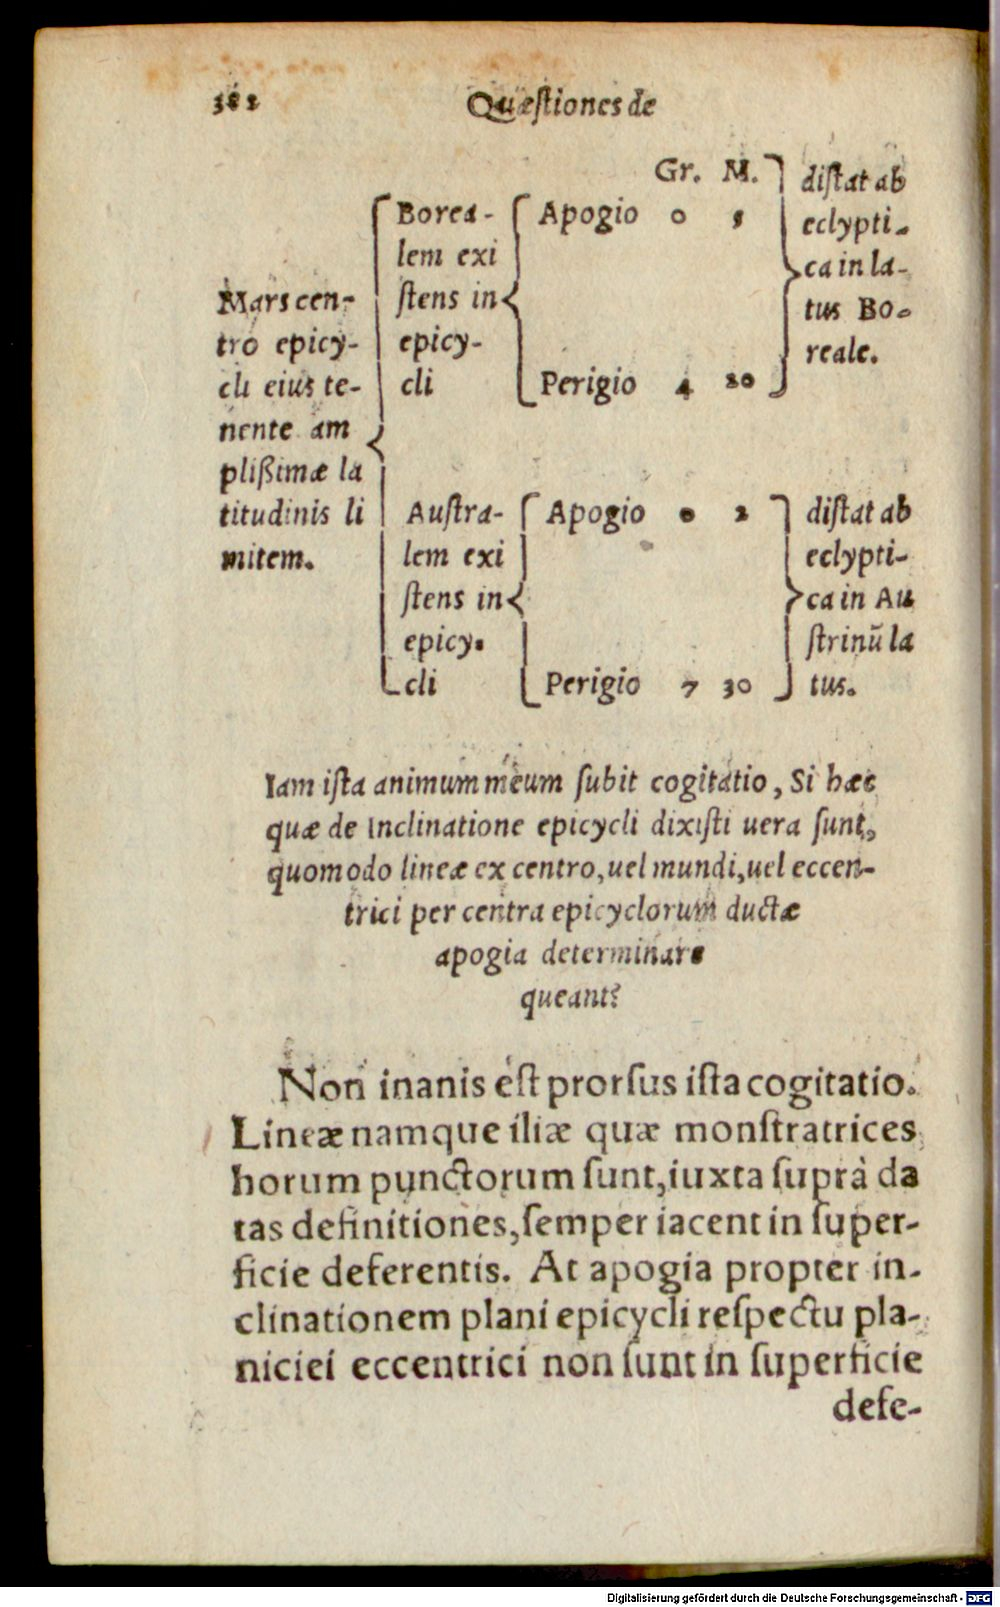 382 Quæſtiones de
Gr. M.
Mars cen-
tro epicy-
cli eius te-
nente am
plißimæ la
titudinis li
mitem.
Borea-
lem exi
ſtens in
epicy-
cli
Apogio 0 5
Perigio 4 20
diſtat ab
eclypti-
ca in la-
tus Bo-
reale.
Auſtra-
lem exi
ſtens in
epicy-
cli
Apogio 0 2
Perigio 7 30
diſtat ab
eclypti-
ca in Au
ſtrinū la
tus.
Iam iſta animum meum ſubit cogitatio, Si hæc
quæ de Inclinatione epicycli dixiſti uera ſunt,
quomodo lineæ ex centro, uel mundi, uel eccen-
trici per centra epicyclorum ductæ
apogia determinare
queant?
Non inanis eſt prorſus iſta cogitatio.
Lineæ namque illæ quæ monſtratrices
horum punctorum ſunt, iuxta ſuprà da
tas definitiones, ſemper iacent in ſuper-
ficie deferentis. At apogia propter in-
clinationem plani epicycli reſpectu pla-
niciei eccentrici non ſunt in ſuperficie
defe-
Digitalisierung gefördert durch die Deutsche Forschungsgemeinschaft - DFG